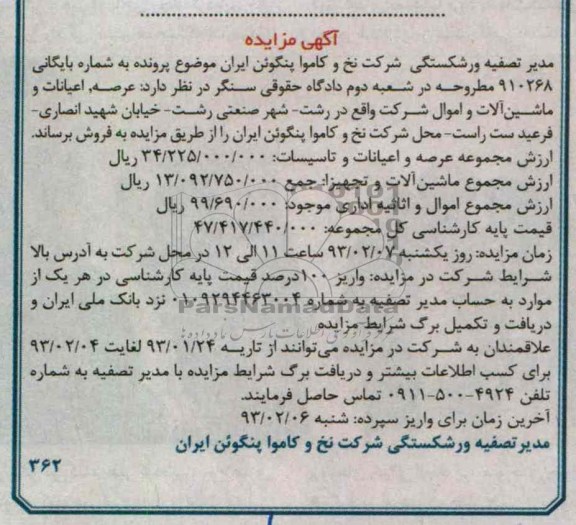 آگهی مزایده
مدیر تصفیه ورشکستگی شرکت نخ و کاموا پنگوئن ایران موضوع پرونده به شماره بایگانی
۹۱۰۲۶۸ مطروحه در شعبه دوم دادگاه حقوقی سنگر در نظر دارد: عرصه, اعیانات و
ماشین‌آلات و اموال شرکت واقع در رشت- شهر صنعتی رشت- خیابان شهید انصاری-
فرعید ست راست- محل شرکت نخ و کاموا پنگوئن ایران را از طریق مزایده به فروش برساند.
ارزش مجموعه عرصه و اعیانات و تاسیسات: ۳۴/۲۲۵/۰۰۰/۰۰۰ ریال
ارزش مجموع ماشین‌آلات و تجهیزا: جمع ۱۳/۰۹۲/۷۵۰/۰۰۰ ریال
ارزش مجموع اموال و اثاثیه اداری موجود: ۹۹/۶۹۰/۰۰۰ ریال
قیمت پایه کارشناسی کل مجموعه: ۴۷/۴۱۷/۴۴۰/۰۰۰
زمان مزایده: روز یکشنبه ۹۳/۰۲/۰۷ ساعت ۱۱ الی ۱۲ در محل شرکت به آدرس بالا
شرایط شرکت در مزایده: واریز ۱۰۰درصد قیمت پایه کارشناسی در هر یک از
موارد به حساب مدیر تصفیه به شماره ۰۱۰۹۲۹۴۴۶۳۰۰۴ نزد بانک ملی ایران و
دریافت و تکمیل برگ شرایط مزایده
ParsNamadData
علاقمندان به شرکت در مزایده می‌توانند از تاریـــه ۹۳/۰۱/۲۴ لغایت ۹۳/۰۲/۰۴
برای کسب اطلاعات بیشتر و دریافت برگ شرایط مزایده با مدیر تصفیه به شماره
تلفن ۴۹۲۴-۵۰۰-۰۹۱۱ تماس حاصل فرمایند.
آخرین زمان برای واریز سپرده: شنبه ۹۳/۰۲/۰۶
مدیر تصفیه ورشکستگی شرکت نخ و کاموا پنگوئن ایران
۳۶۲